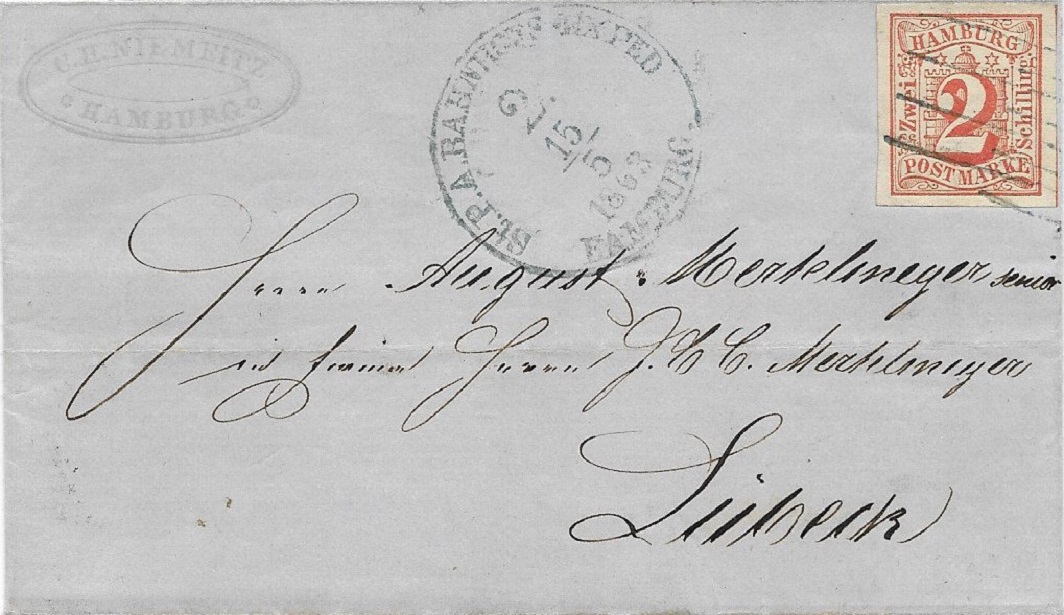 C.H. NIEMEITZ
HAMBURG
St.P.A. BAHNHOFS EXPED
15/5
1863
HAMBURG.
HAMBURG
Zwei
2
Schilling
POSTMARKE
Herrn August Mertelmeyer senior
in Firma Herrn J. C. C. Mertelmeyer
Lübeck